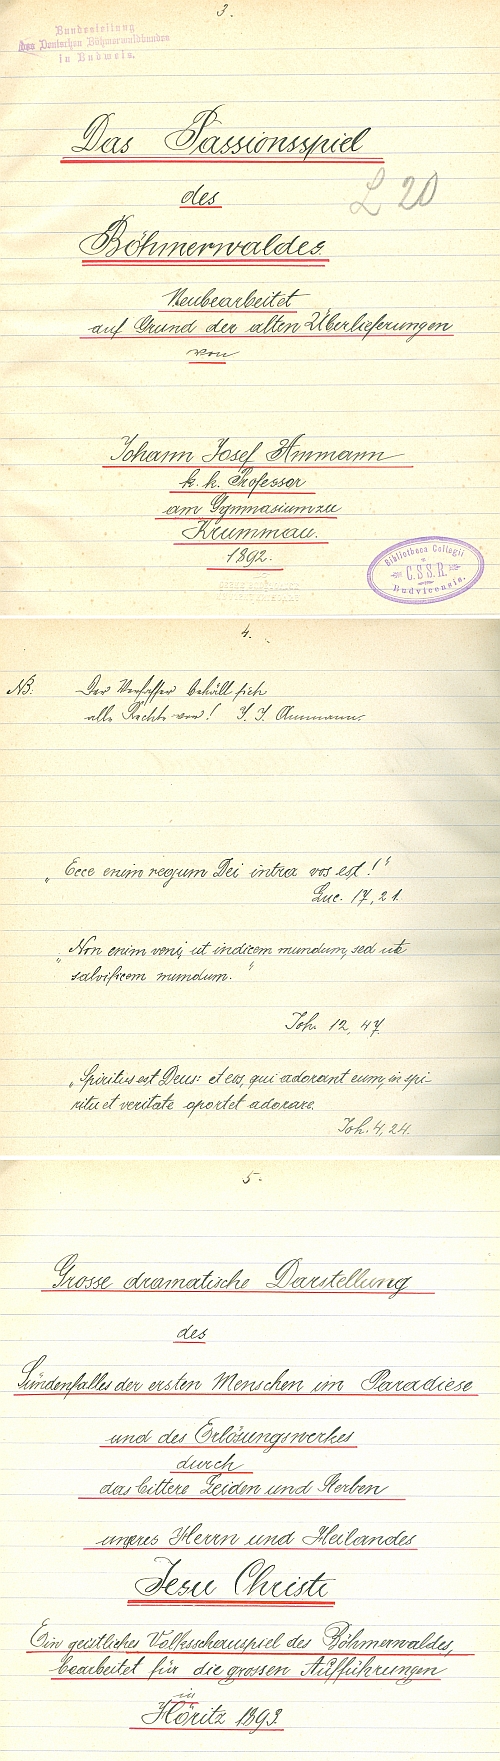 3.
Bundesleitung
des Deutschen Böhmerwaldbundes
in Budweis.
Das Passionsspiel
des
L 20
Böhmerwaldes.
Neubearbeitet
auf Grund der alten Überlieferungen
von
Johann Josef Ammann
k. k. Professor
am Gymnasium zu
Krummau.
1892.
Bibliotheca Collegii
C.S.S.R.
Budvicensis.
4.
NB. Der Verfasser behält sich
alle Rechte vor! J. J. Ammann.
„Ecce enim regum Dei intra vos est!“
Luc. 17, 21.
„Non enim veni, ut iudicem mundum, sed ut
salvificem mundum.“
Joh. 12, 47.
„Spiritus est Deus: et eos, qui adorant eum, in spi-
ritu et veritate oportet adorare.
Joh. 4, 24.
5.
Grosse dramatische Darstellung
des
Sündenfalles der ersten Menschen im Paradiese
und des Erlösungswerkes
durch
das bittere Leiden und Sterben
unseres Herrn und Heilandes
Jesu Christi
Ein geistliches Volksschauspiel des Böhmerwaldes,
bearbeitet für die grossen Aufführungen
in
Höritz 1893.